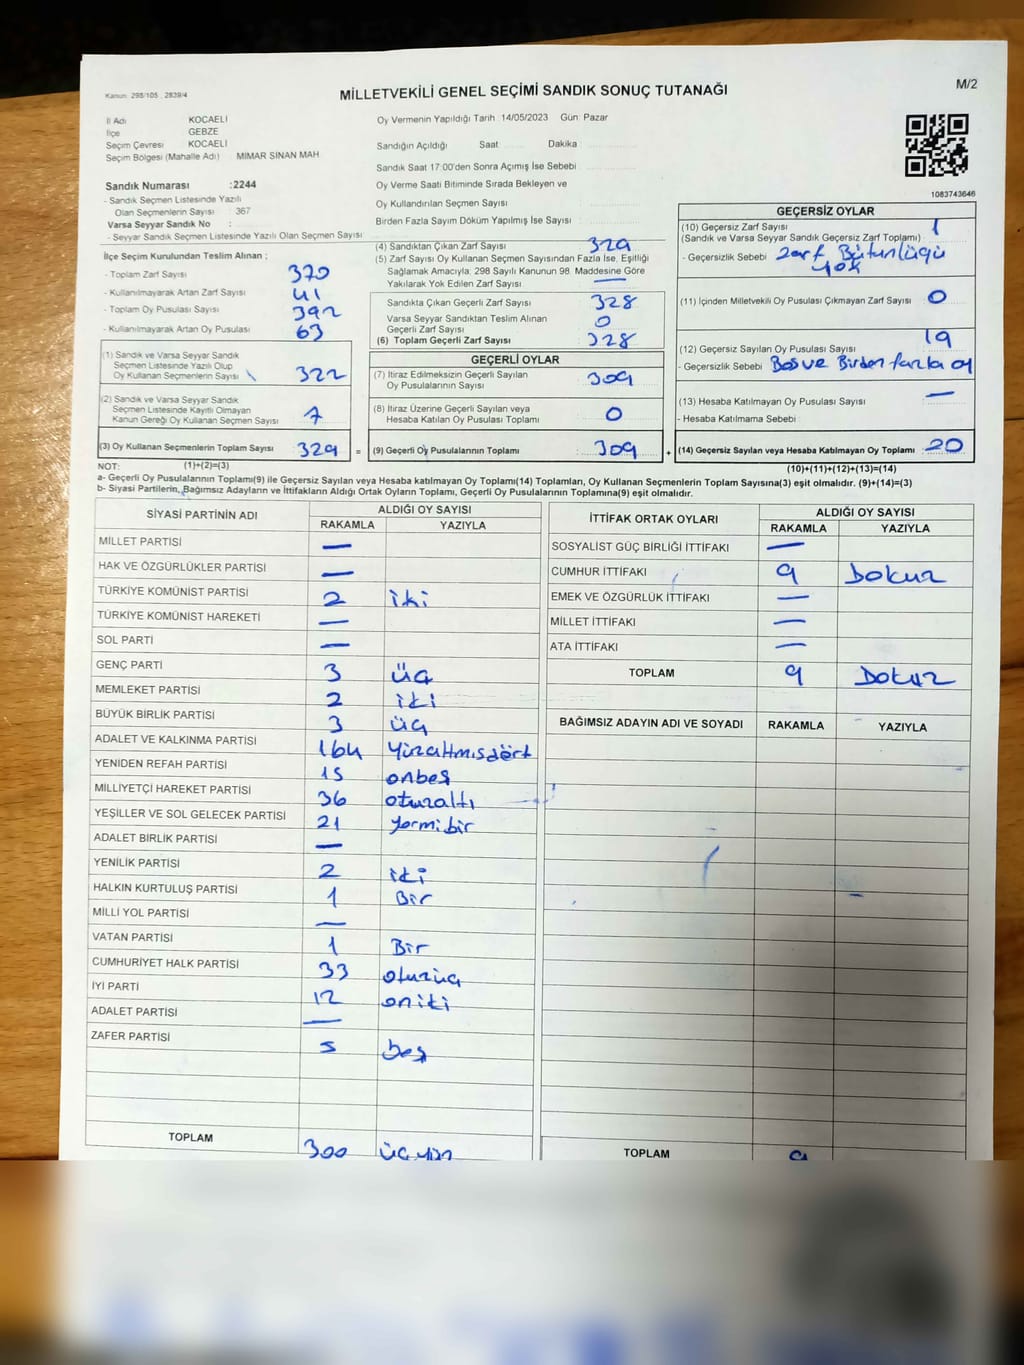 Kanun: 298/105 , 2839/4
MİLLETVEKİLİ GENEL SEÇİMİ SANDIK SONUÇ TUTANAĞI
M/2
İl Adı KOCAELİ
İlçe GEBZE
Seçim Çevresi KOCAELİ
Seçim Bölgesi (Mahalle Adı) MİMAR SİNAN MAH
Sandık Numarası :2244
- Sandık Seçmen Listesinde Yazılı
Olan Seçmenlerin Sayısı : 367
Varsa Seyyar Sandık No :
- Seyyar Sandık Seçmen Listesinde Yazılı Olan Seçmen Sayısı :
İlçe Seçim Kurulundan Teslim Alınan ;
- Toplam Zarf Sayısı 370
- Kullanılmayarak Artan Zarf Sayısı 41
- Toplam Oy Pusulası Sayısı 392
- Kullanılmayarak Artan Oy Pusulası 63
(1) Sandık ve Varsa Seyyar Sandık
Seçmen Listesinde Yazılı Olup
Oy Kullanan Seçmenlerin Sayısı 322
(2) Sandık ve Varsa Seyyar Sandık
Seçmen Listesinde Kayıtlı Olmayan
Kanun Gereği Oy Kullanan Seçmen Sayısı 7
(3) Oy Kullanan Seçmenlerin Toplam Sayısı 329
(1)+(2)=(3)
Oy Vermenin Yapıldığı Tarih :14/05/2023 Gün: Pazar
Sandığın Açıldığı Saat Dakika
Sandık Saat 17:00'den Sonra Açımış İse Sebebi
Oy Verme Saati Bitiminde Sırada Bekleyen ve
Oy Kullandırılan Seçmen Sayısı
Birden Fazla Sayım Döküm Yapılmış İse Sayısı :
(4) Sandıktan Çıkan Zarf Sayısı 329
(5) Zarf Sayısı Oy Kullanan Seçmen Sayısından Fazla İse, Eşitliği
Sağlamak Amacıyla; 298 Sayılı Kanunun 98. Maddesine Göre
Yakılarak Yok Edilen Zarf Sayısı —
Sandıkta Çıkan Geçerli Zarf Sayısı 328
Varsa Seyyar Sandıktan Teslim Alınan
Geçerli Zarf Sayısı 0
(6) Toplam Geçerli Zarf Sayısı 328
GEÇERLİ OYLAR
(7) İtiraz Edilmeksizin Geçerli Sayılan
Oy Pusulalarının Sayısı 309
(8) İtiraz Üzerine Geçerli Sayılan veya
Hesaba Katılan Oy Pusulası Toplamı 0
= (9) Geçerli Oy Pusulalarının Toplamı 309 +
1083743646
GEÇERSİZ OYLAR
(10) Geçersiz Zarf Sayısı 1
(Sandık ve Varsa Seyyar Sandık Geçersiz Zarf Toplamı)
- Geçersizlik Sebebi zarf Bütünlüğü
yok
(11) İçinden Milletvekili Oy Pusulası Çıkmayan Zarf Sayısı 0
(12) Geçersiz Sayılan Oy Pusulası Sayısı 19
- Geçersizlik Sebebi Bos ve Birden fazla oy
(13) Hesaba Katılmayan Oy Pusulası Sayısı —
- Hesaba Katılmama Sebebi
(14) Geçersiz Sayılan veya Hesaba Katılmayan Oy Toplamı 20
(10)+(11)+(12)+(13)=(14)
NOT:
a- Geçerli Oy Pusulaları(9) ile Geçersiz Sayılan veya Hesaba katılmayan Oy Toplamı(14) Toplamları, Oy Kullanan Seçmenlerin Toplam Sayısına(3) eşit olmalıdır. (9)+(14)=(3)
b- Siyasi Partilerin, Bağımsız Adayların ve İttifakların Aldığı Ortak Oyların Toplamı, Geçerli Oy Pusulalarının Toplamına(9) eşit olmalıdır.
SİYASİ PARTİNİN ADI ALDIĞI OY SAYISI
RAKAMLA YAZIYLA
MİLLET PARTİSİ —
HAK VE ÖZGÜRLÜKLER PARTİSİ —
TÜRKİYE KOMÜNİST PARTİSİ 2 iki
TÜRKİYE KOMÜNİST HAREKETİ —
SOL PARTİ —
GENÇ PARTİ 3 üç
MEMLEKET PARTİSİ 2 iki
BÜYÜK BİRLİK PARTİSİ 3 üç
ADALET VE KALKINMA PARTİSİ 164 yüzaltmısdört
YENİDEN REFAH PARTİSİ 15 onbeş
MİLLİYETÇİ HAREKET PARTİSİ 36 otuzaltı
YEŞİLLER VE SOL GELECEK PARTİSİ 21 yermibir
ADALET BİRLİK PARTİSİ —
YENİLİK PARTİSİ 2 iki
HALKIN KURTULUŞ PARTİSİ 1 Bir
MİLLİ YOL PARTİSİ —
VATAN PARTİSİ 1 Bir
CUMHURİYET HALK PARTİSİ 33 otuzüç
İYİ PARTİ 12 oniki
ADALET PARTİSİ —
ZAFER PARTİSİ 5 beş
TOPLAM 300 üçyüz
İTTİFAK ORTAK OYLARI ALDIĞI OY SAYISI
RAKAMLA YAZIYLA
SOSYALİST GÜÇ BİRLİĞİ İTTİFAKI —
CUMHUR İTTİFAKI 9 Dokuz
EMEK VE ÖZGÜRLÜK İTTİFAKI —
MİLLET İTTİFAKI —
ATA İTTİFAKI —
TOPLAM 9 Dokuz
BAĞIMSIZ ADAYIN ADI VE SOYADI RAKAMLA YAZIYLA
TOPLAM 9